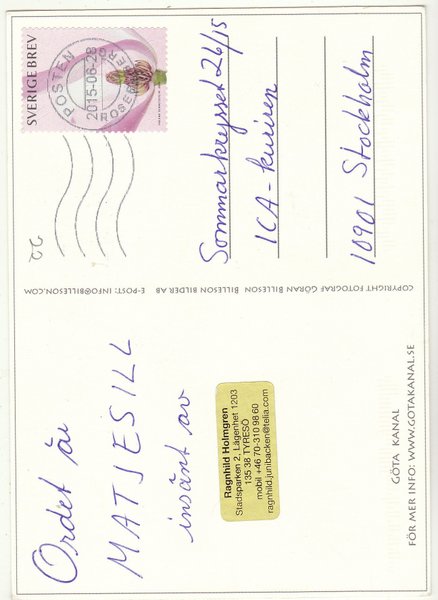 Ordet är
MATJESILL
insänt av
Ragnhild Holmgren
Stadsparken 2, Lägenhet 1203
135 38 TYRESÖ
mobil +46 70-310 98 60
ragnhild.junibacken@telia.com
GÖTA KANAL
FÖR MER INFO: WWW.GOTAKANAL.SE
COPYRIGHT FOTOGRAF GÖRAN BILLESON BILLESON BILDER AB E-POST: INFO@BILLESON.COM
SVERIGE BREV
POSTEN
2015-06-28
ROSERSBERG
22
Sommarkrysset 26/15
ICA-kuriren
10901 Stockholm